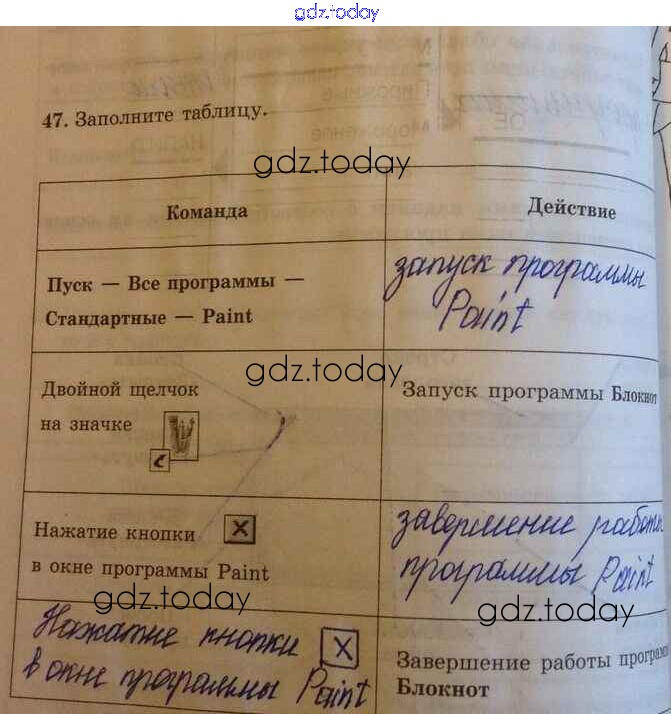 gdz.today
47. Заполните таблицу.
gdz.today
Команда
Действие
Пуск — Все программы —
Стандартные — Paint
запуск программы
Paint
gdz.today
Двойной щелчок
на значке
Запуск программы Блокнот
Нажатие кнопки X
в окне программы Paint
завершение работы
программы Paint
gdz.today
gdz.today
Нажатие кнопки X
в окне программы Paint
Завершение работы
Блокнот